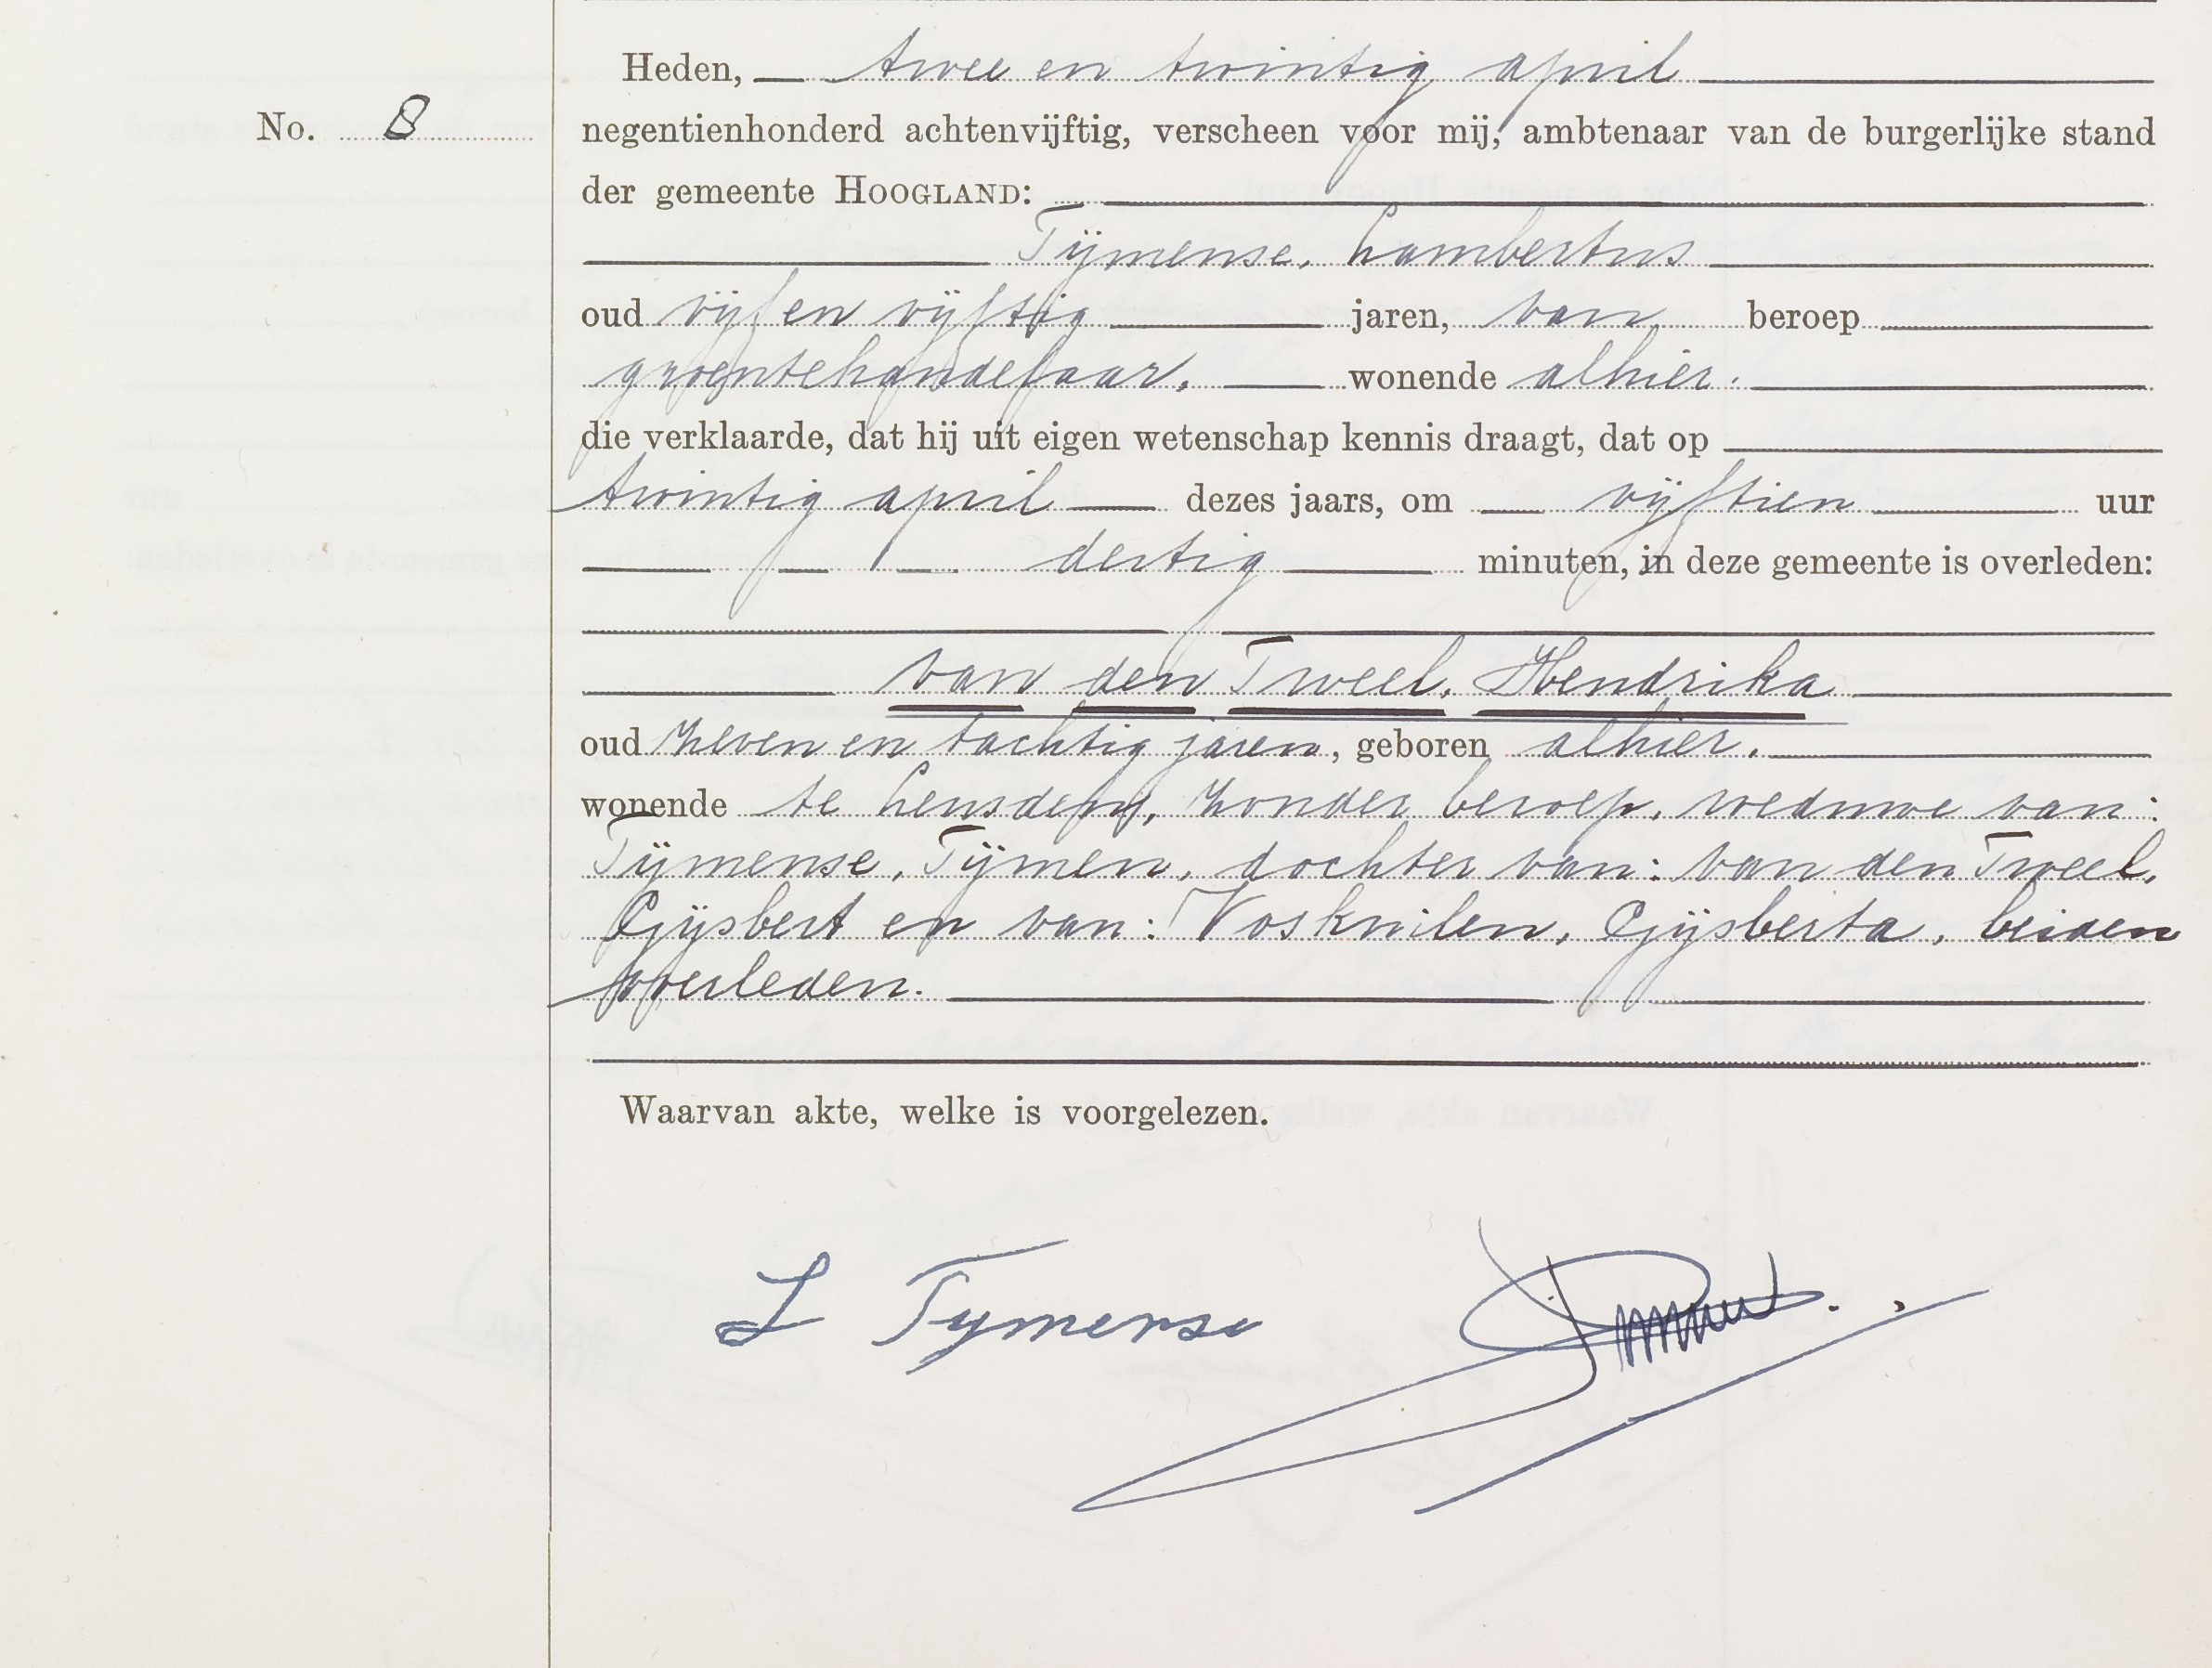 Heden, twee en twintig april
No. 8
negentienhonderd achtenvijftig, verscheen voor mij, ambtenaar van de burgerlijke stand
der gemeente HOOGLAND:
Tijmense, Lambertus
oud vijf en vijftig jaren, van beroep
groentehandelaar, wonende alhier.
die verklaarde, dat hij uit eigen wetenschap kennis draagt, dat op
twintig april dezes jaars, om vijftien uur
dertig minuten, in deze gemeente is overleden:
van den Tweel, Hendrika
oud zeven en tachtig jaren, geboren alhier,
wonende te Leusden, zonder beroep, weduwe van:
Tijmense, Tijmen, dochter van: van den Tweel,
Gijsbert en van: Voskuilen, Gijsberta, beiden
overleden.
Waarvan akte, welke is voorgelezen.
L Tymense